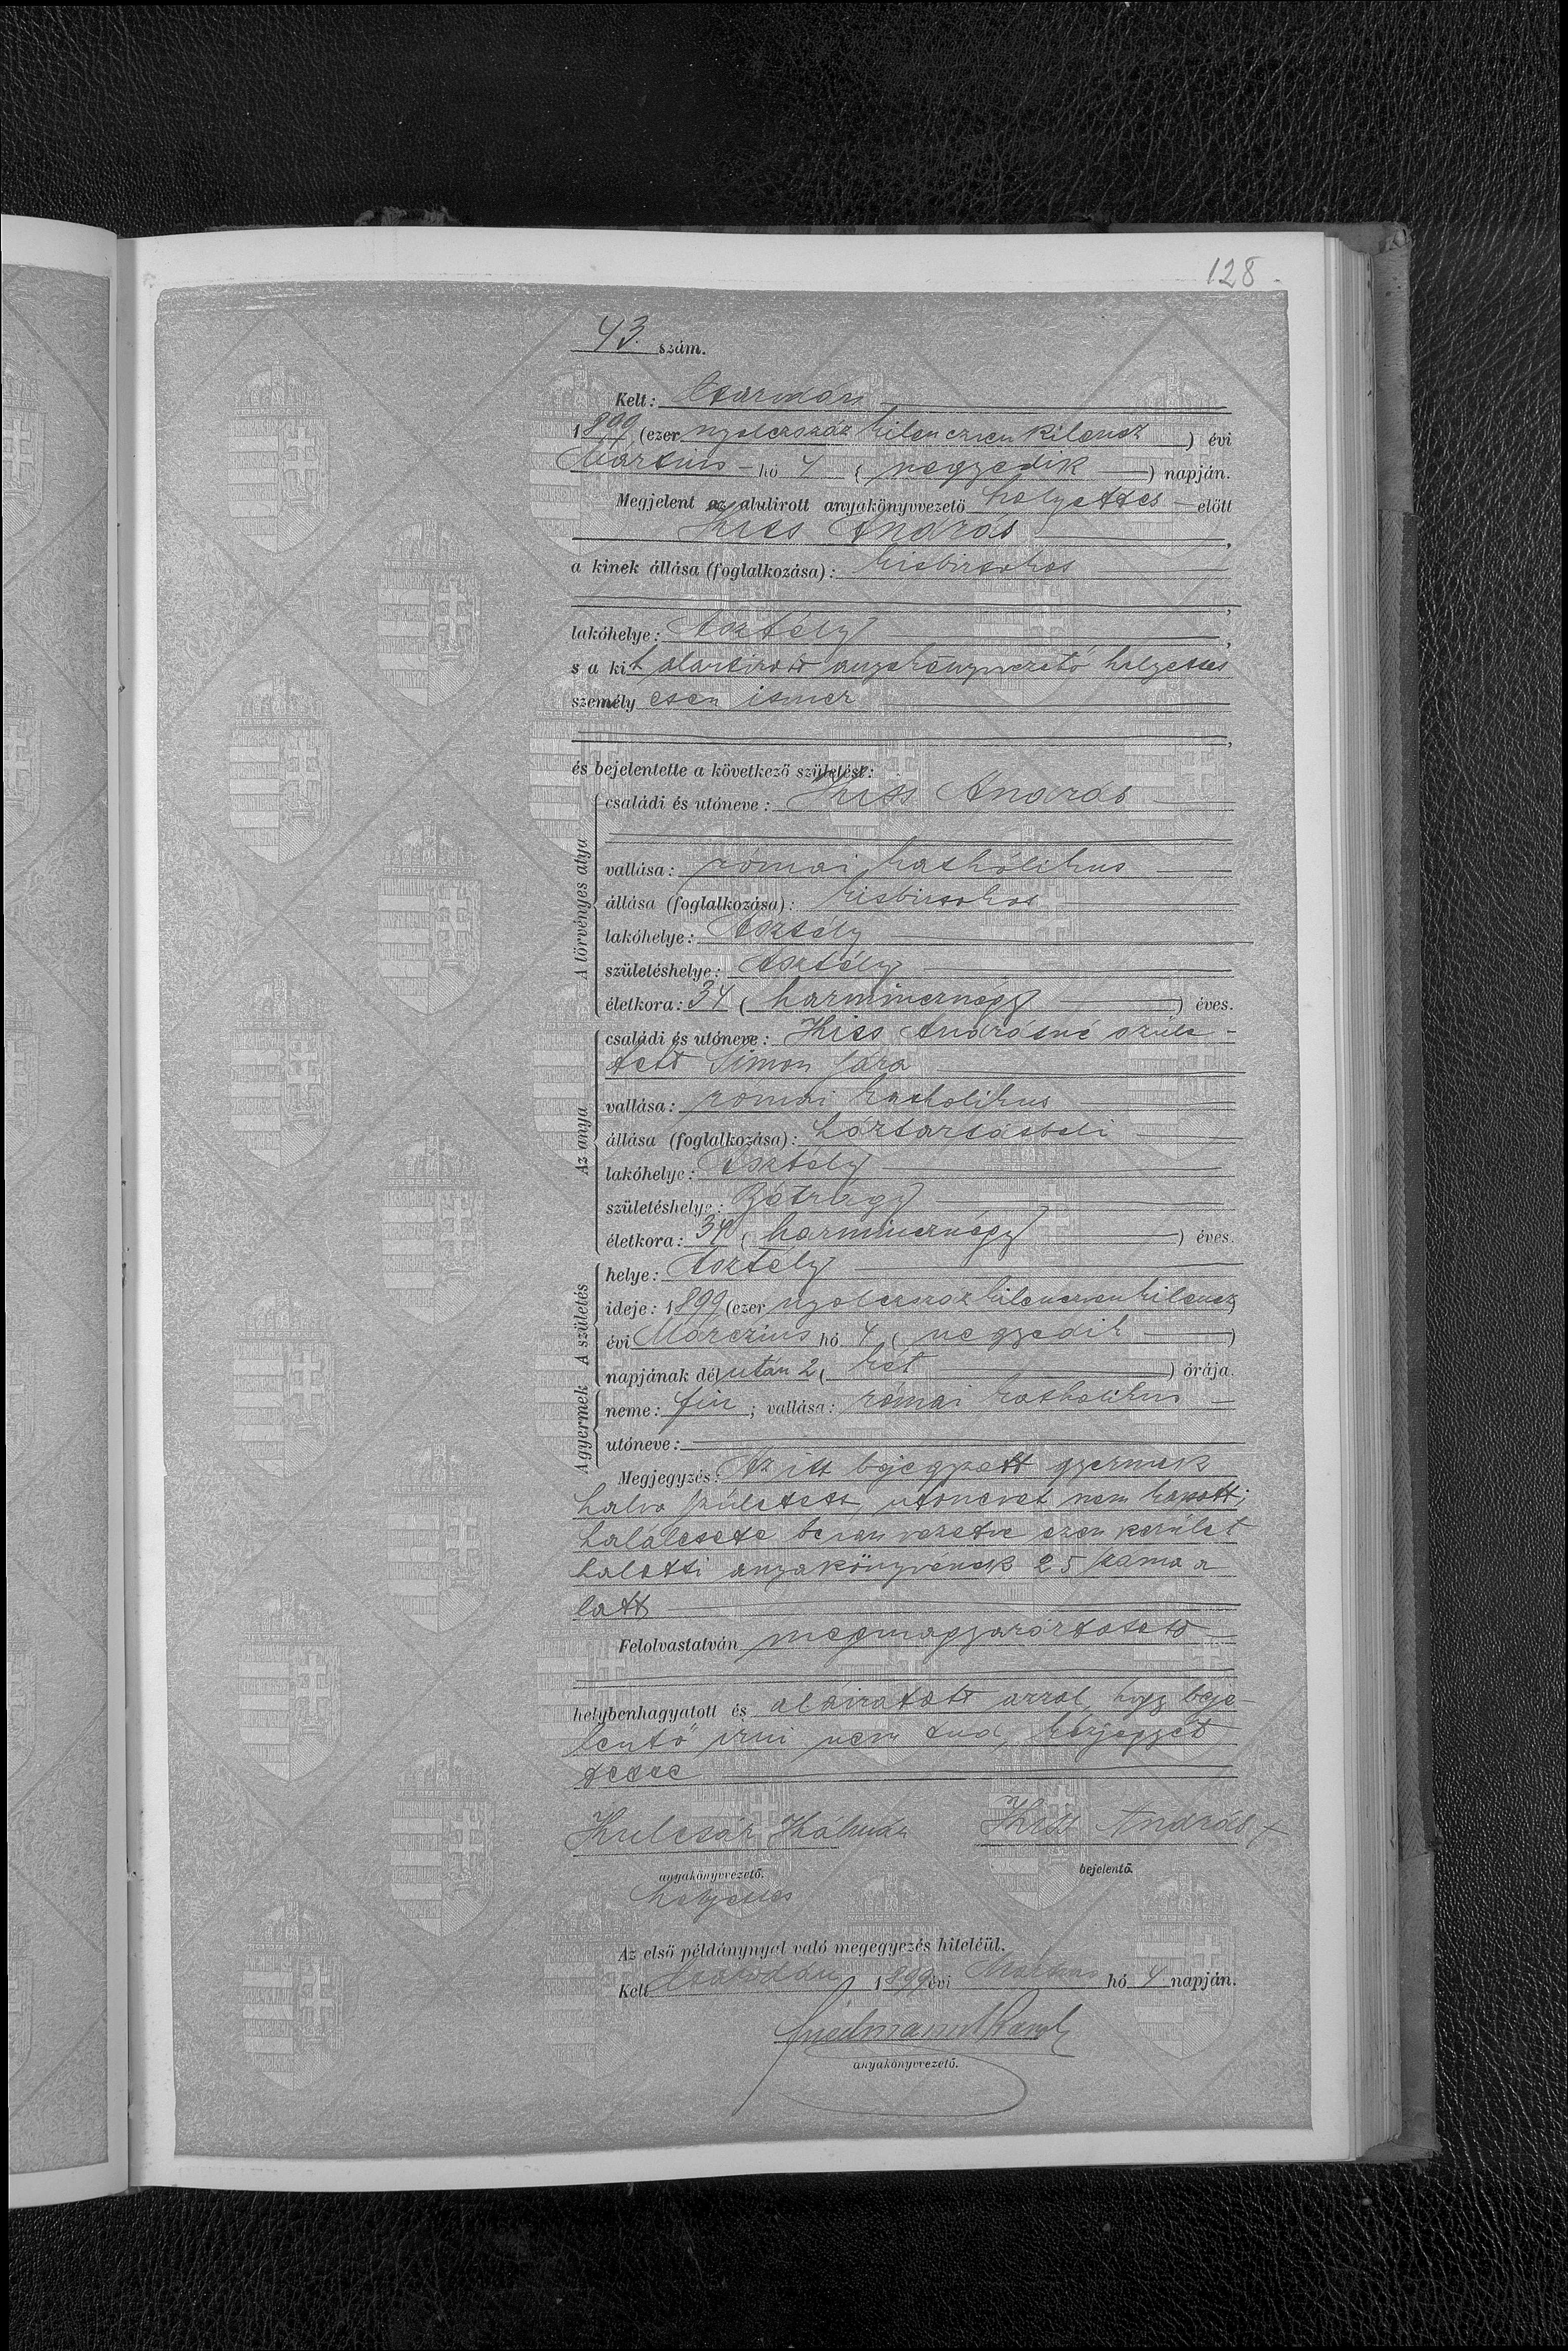 128
43. szám.
Kelt: Csarodán
1899 (ezer nyolczszáz kilenczven kilencz) évi
Martius hó 4 (negyedik) napján.
Megjelent az alulirott anyakönyvvezető helyettes előtt
Kiss András,
a kinek állása (foglalkozása): kisbirtokos
lakóhelye: Asztély,
s a kit alantirott anyakönyvvezető helyettes
személyesen ismer
és bejelentette a következő születést:
A törvényes atya
családi és utóneve: Kiss András
vallása: római katholikus
állása (foglalkozása): kisbirtokos
lakóhelye: Asztély
születéshelye: Asztély
életkora: 34 (harmincznégy) éves.
Az anya
családi és utóneve: Kiss Andrásné szüle-
tett Simon Sára
vallása: római katholikus
állása (foglalkozása): háztartásbeli
lakóhelye: Asztély
születéshelye: Bátrágy
életkora: 34 (harmincznégy) éves.
A születés
helye: Asztély
ideje: 1899 (ezer nyolczszázkilenczvenkilencz)
évi Márczius hó 4 (negyedik)
napjának délután 2 (két) órája.
A gyermek
neme: fiu; vallása: római katholikus
utóneve:
Megjegyzés: Az itt bejegyzett gyermek
halva született, utónevet nem kapott;
halálesete be van vezetve ezen kerület
halotti anyakönyvének 25 száma a
latt
Felolvastatván megmagyaráztatott
helybenhagyatott és aláiratott azzal, hogy beje-
lentő irni nem tud, kézjegyét
tette
Kulcsár Kálmán Kiss András x
anyakönyvvezető. bejelentő.
helyettes
Az első példánynyal való megegyezés hiteléül.
Kelt Csarodán 1899 évi Martius hó 4 napján.
anyakönyvvezető.